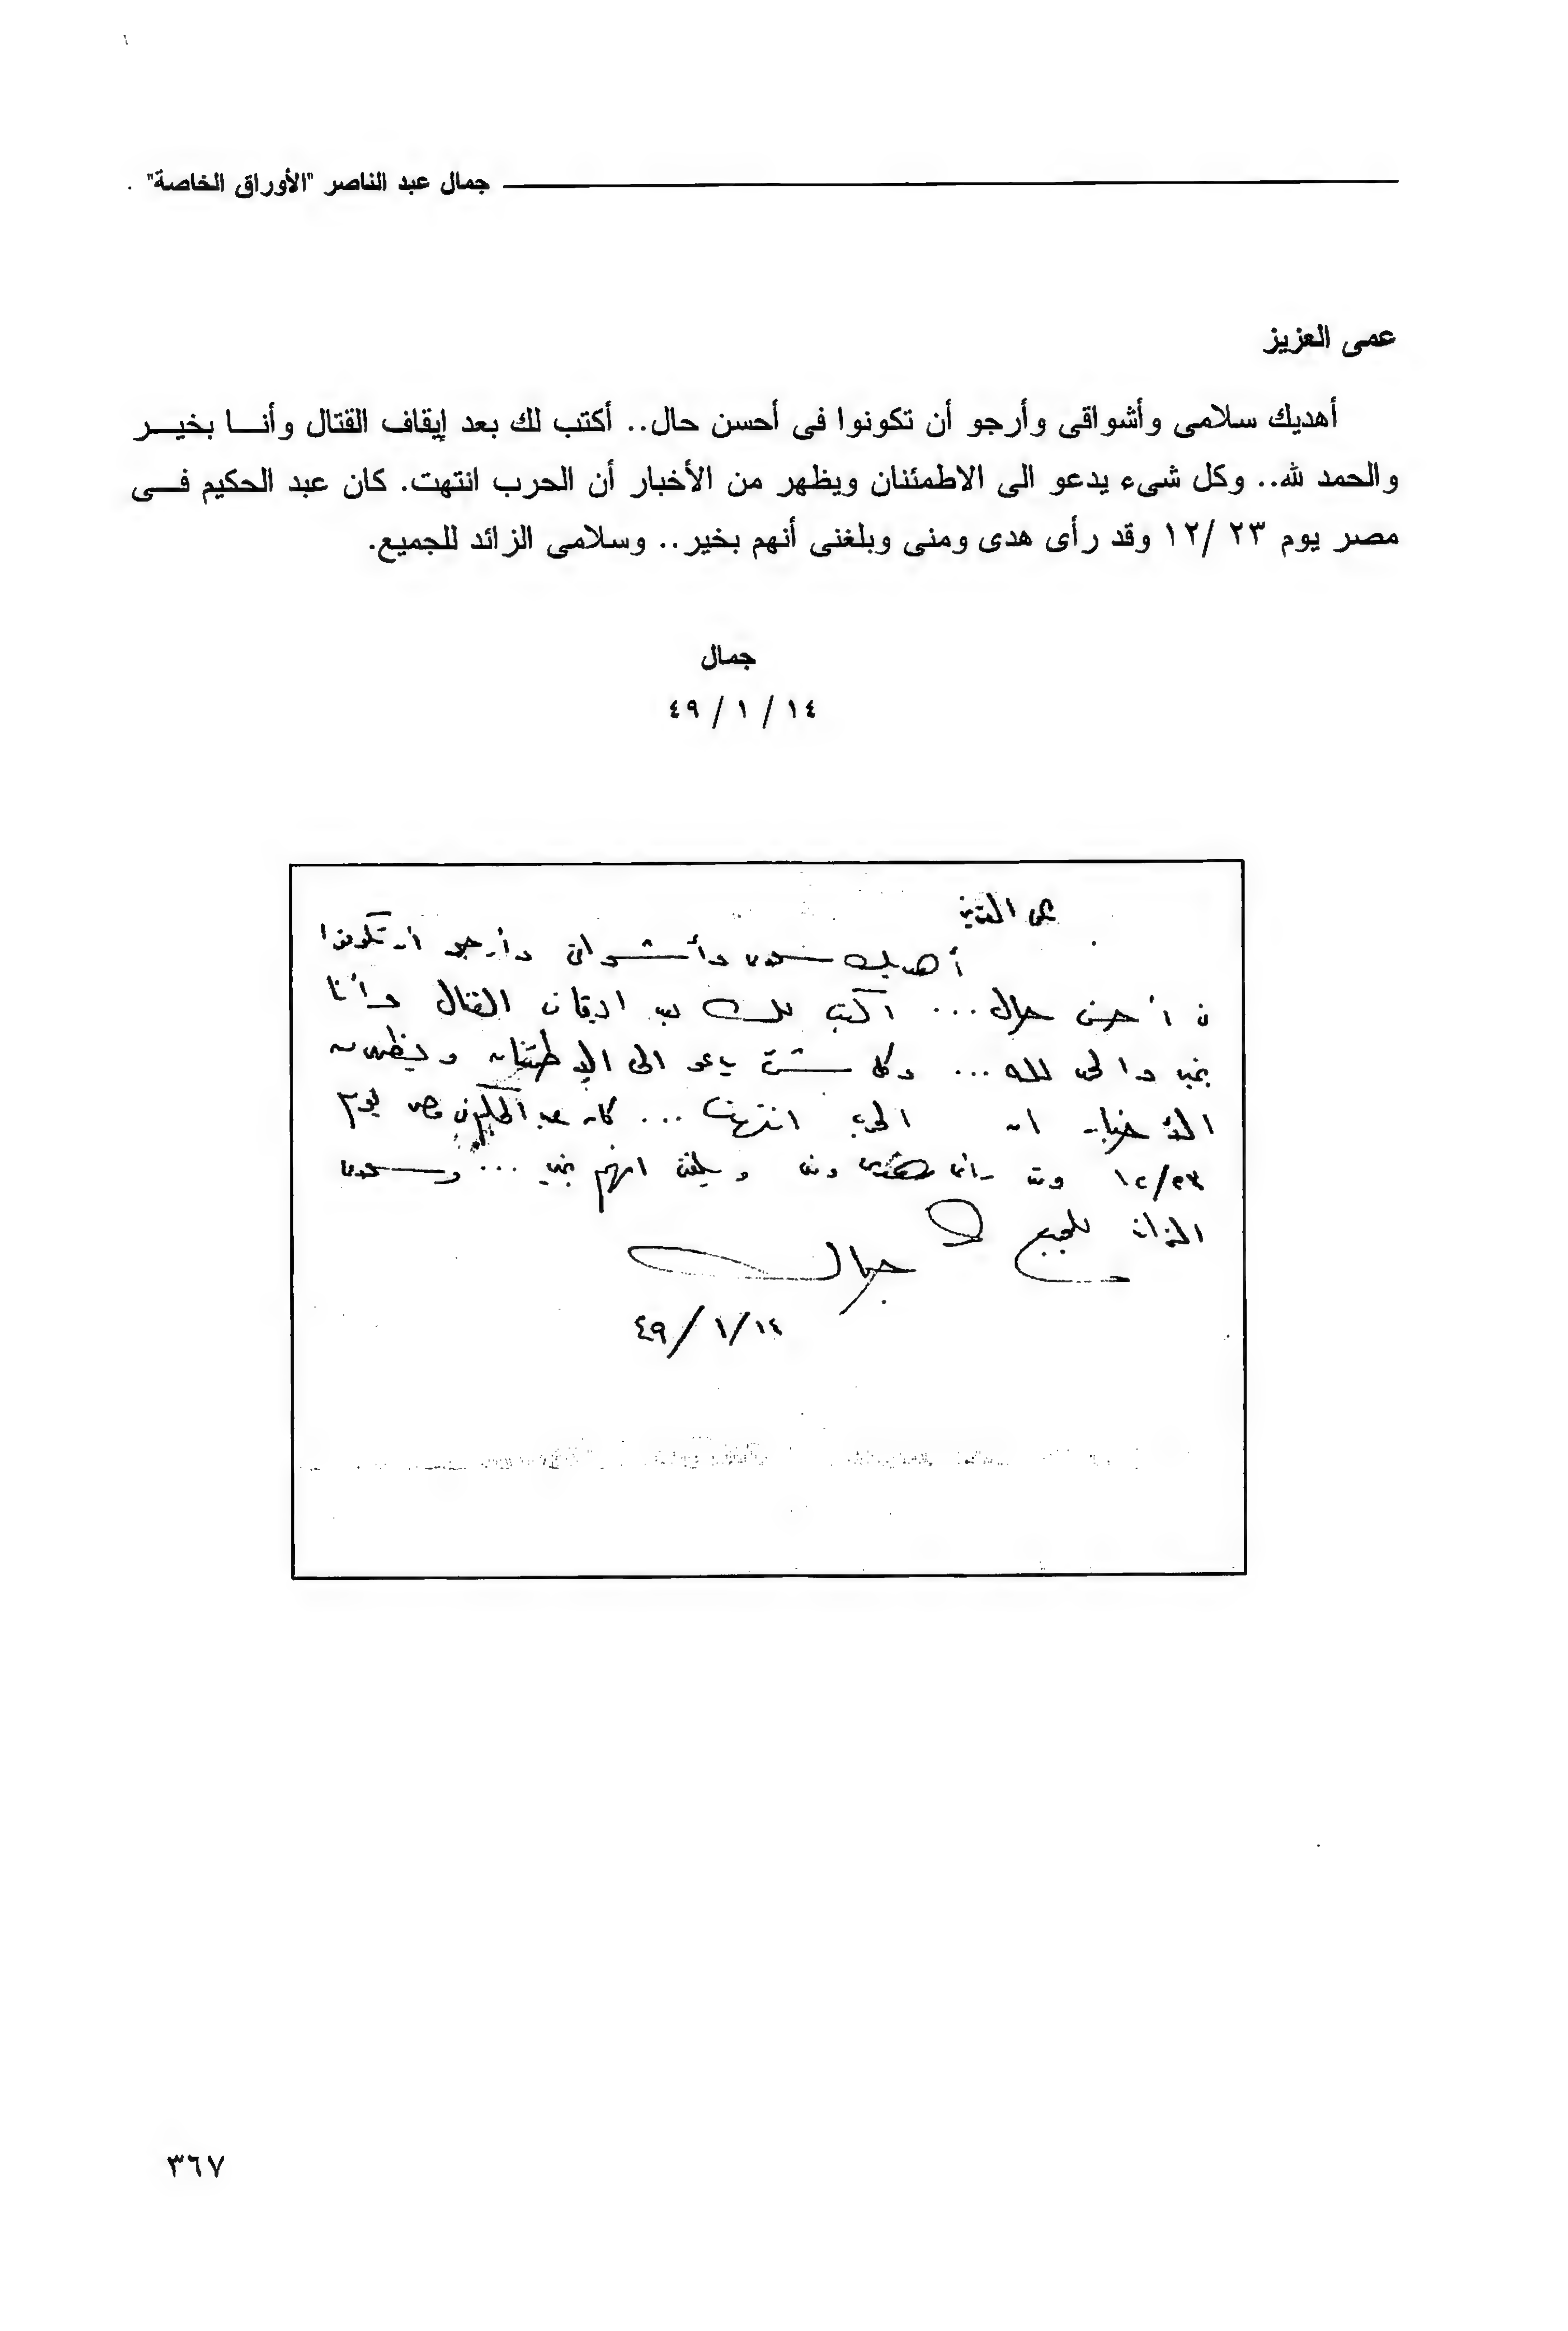 جمال عبد الناصر "الأوراق الخاصة" .
عمى العزيز
أهديك سلامى وأشواقى وأرجو أن تكونوا فى أحسن حال.. أكتب لك بعد إيقاف القتال وأنــا بخيــر
والحمد لله.. وكل شىء يدعو الى الاطمئنان ويظهر من الأخبار أن الحرب انتهت. كان عبد الحكيم فــى
مصر يوم ٢٣ /١٢ وقد رأى هدى ومنى وبلغنى أنهم بخير.. وسلامى الزائد للجميع.
جمال
١٤ / ١ / ٤٩
عمى العزيز
أهديك سلامى وأشواقى وأرجو أن تكونوا
فى أحسن حال ... اكتب لك بعد ايقاف القتال وأنا
بخير والحمد لله ... وكل شئ يدعو الى الاطمئنان ويظهر من
الأخبار ان الحرب انتهت ... كان عبد الحكيم فى مصر يوم
١٢/٢٣ وقد رأى هدى ومنى وبلغنى انهم بخير ... وسلامى
الزائد للجميع
جمال
٤٩/١/١٤
٣٦٧